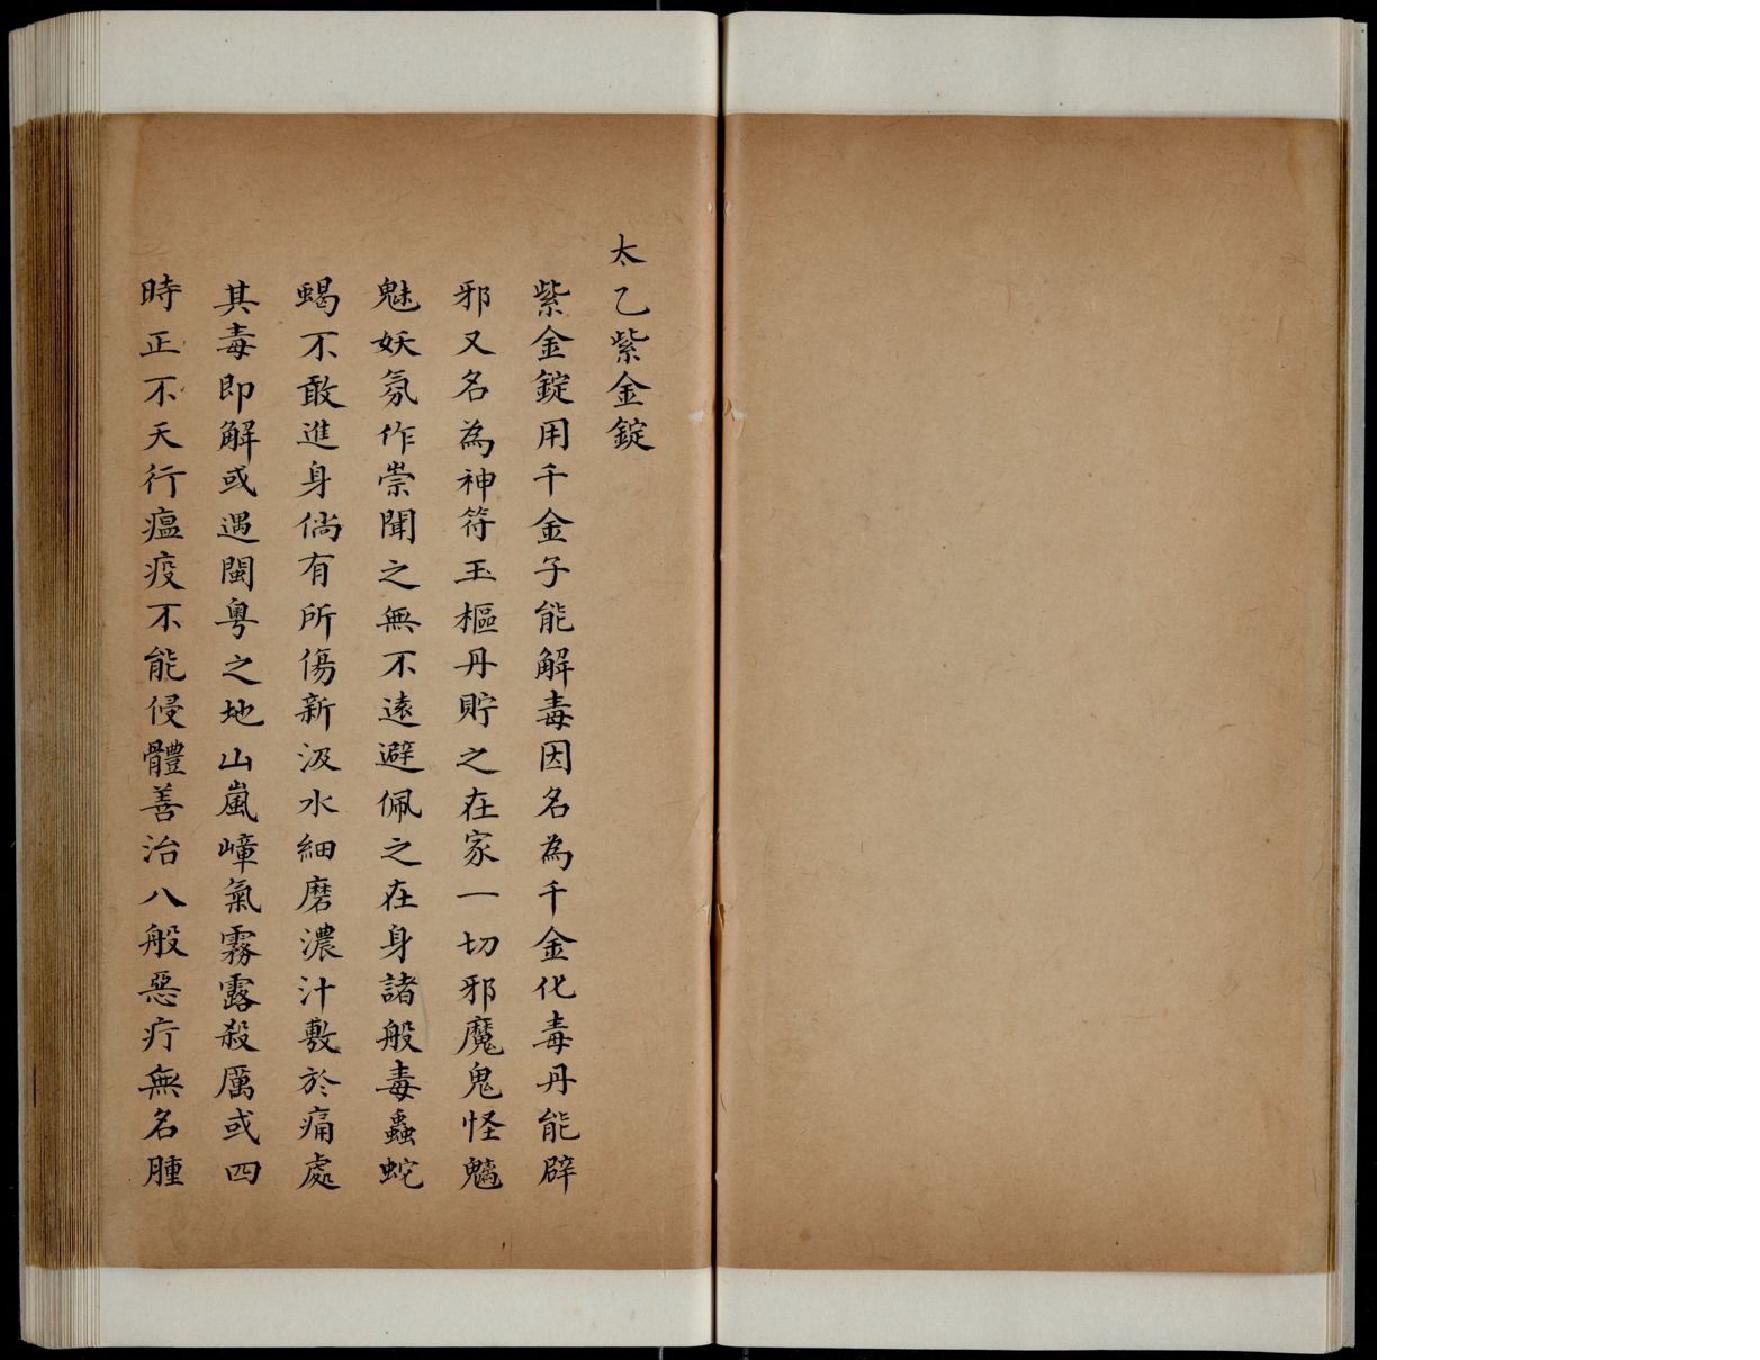 太乙紫金錠
紫金錠用千金子能解毒因名為千金化毒丹能辟
邪又名為神符玉樞丹貯之在家一切邪魔鬼怪魑
魅妖氛作崇聞之無不遠避佩之在身諸般毒蟲蛇
蝎不敢進身倘有所傷新汲水細磨濃汁敷於痛處
其毒即解或遇閩粵之地山嵐嶂氣霧露殺厲或四
時正不天行瘟疫不能侵體善治八般惡疔無名腫